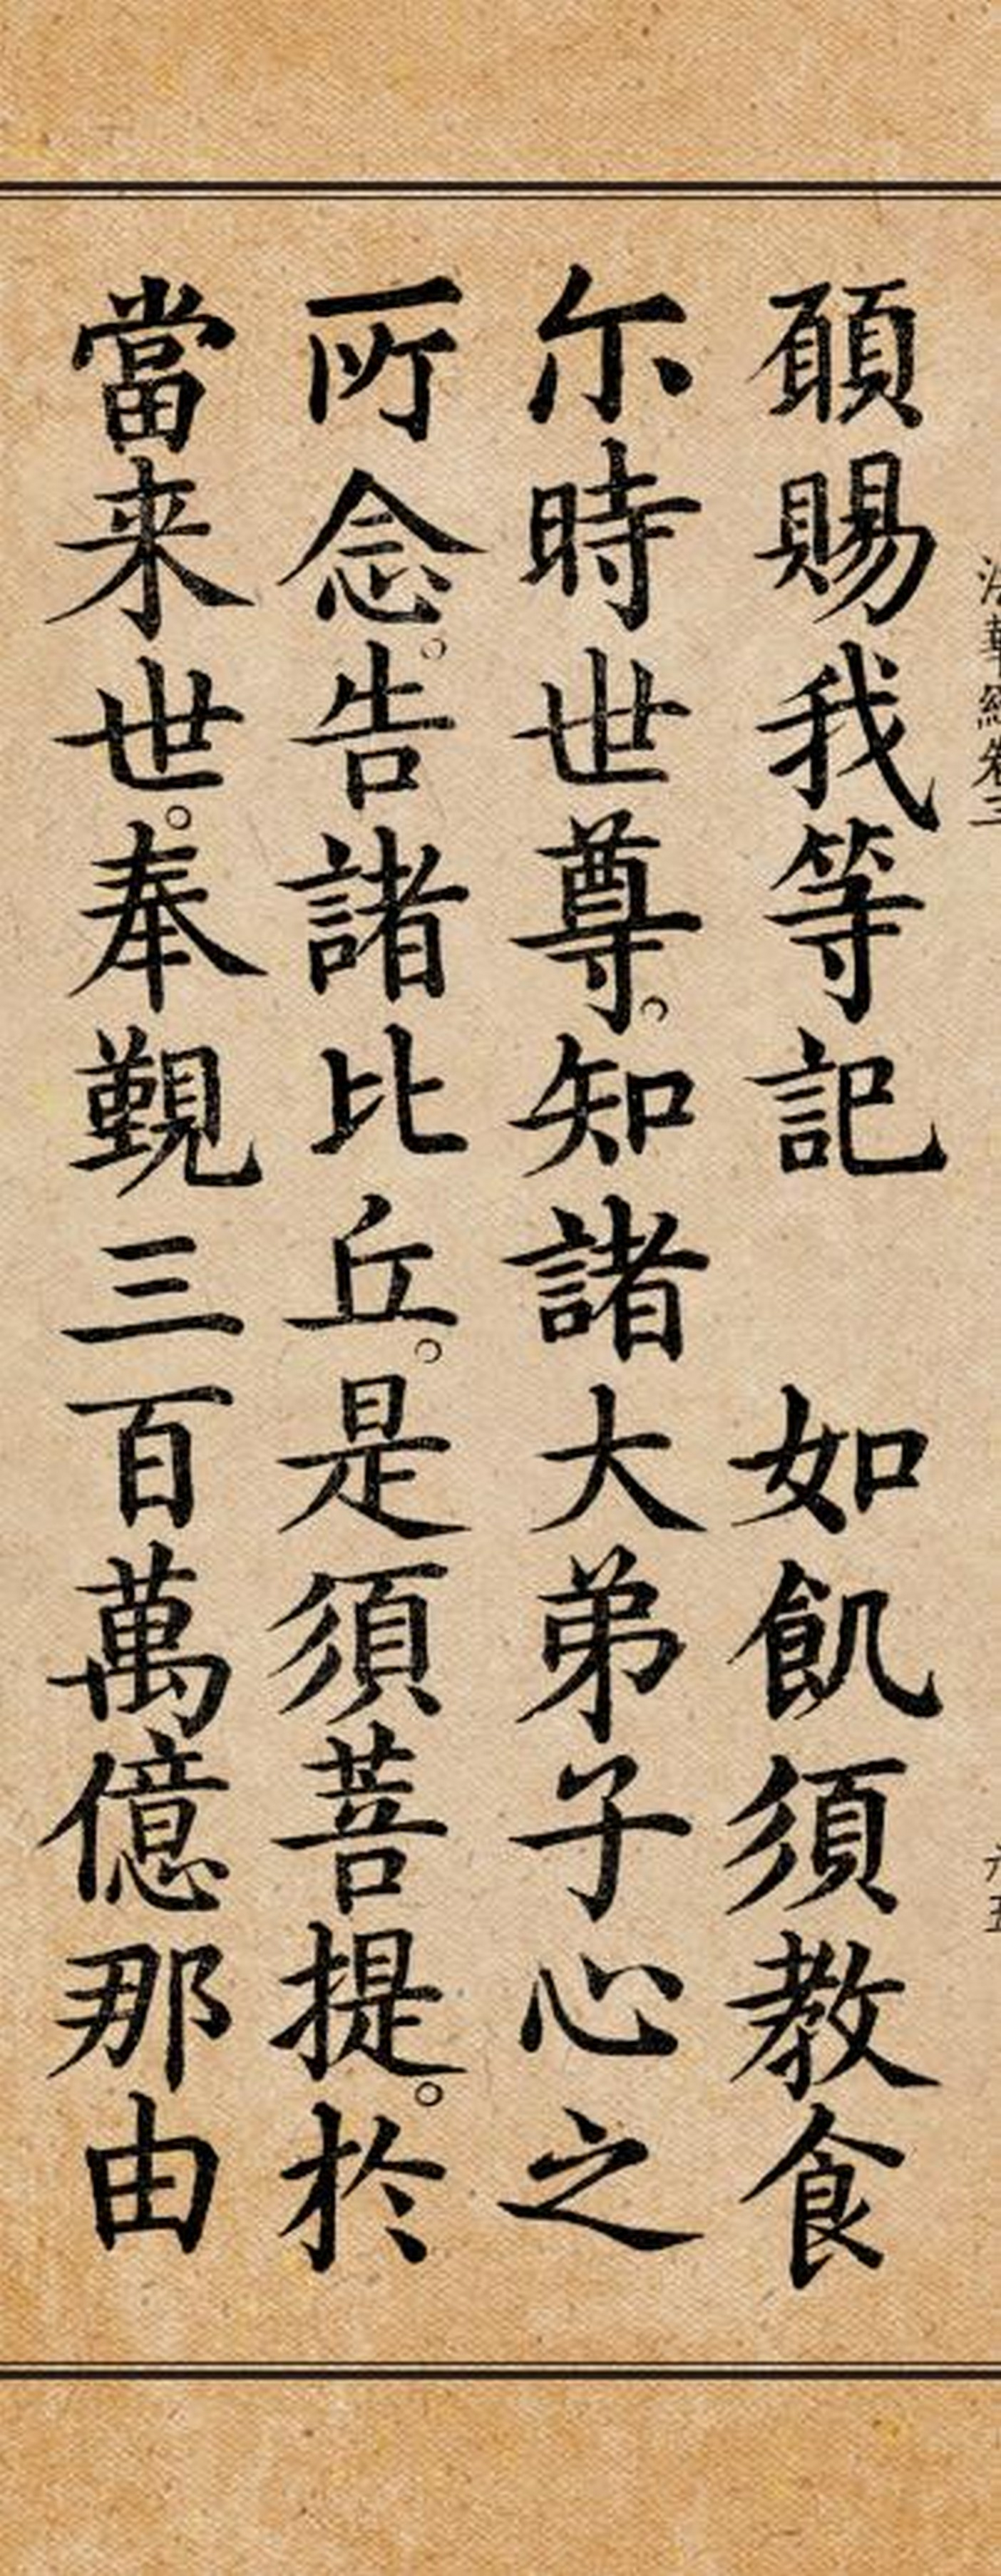 法華經卷三 六五
願賜我等記　如飢須教食
尒時世尊。知諸大弟子心之
所念。告諸比丘。是須菩提。於
當来世。奉覲三百萬億那由